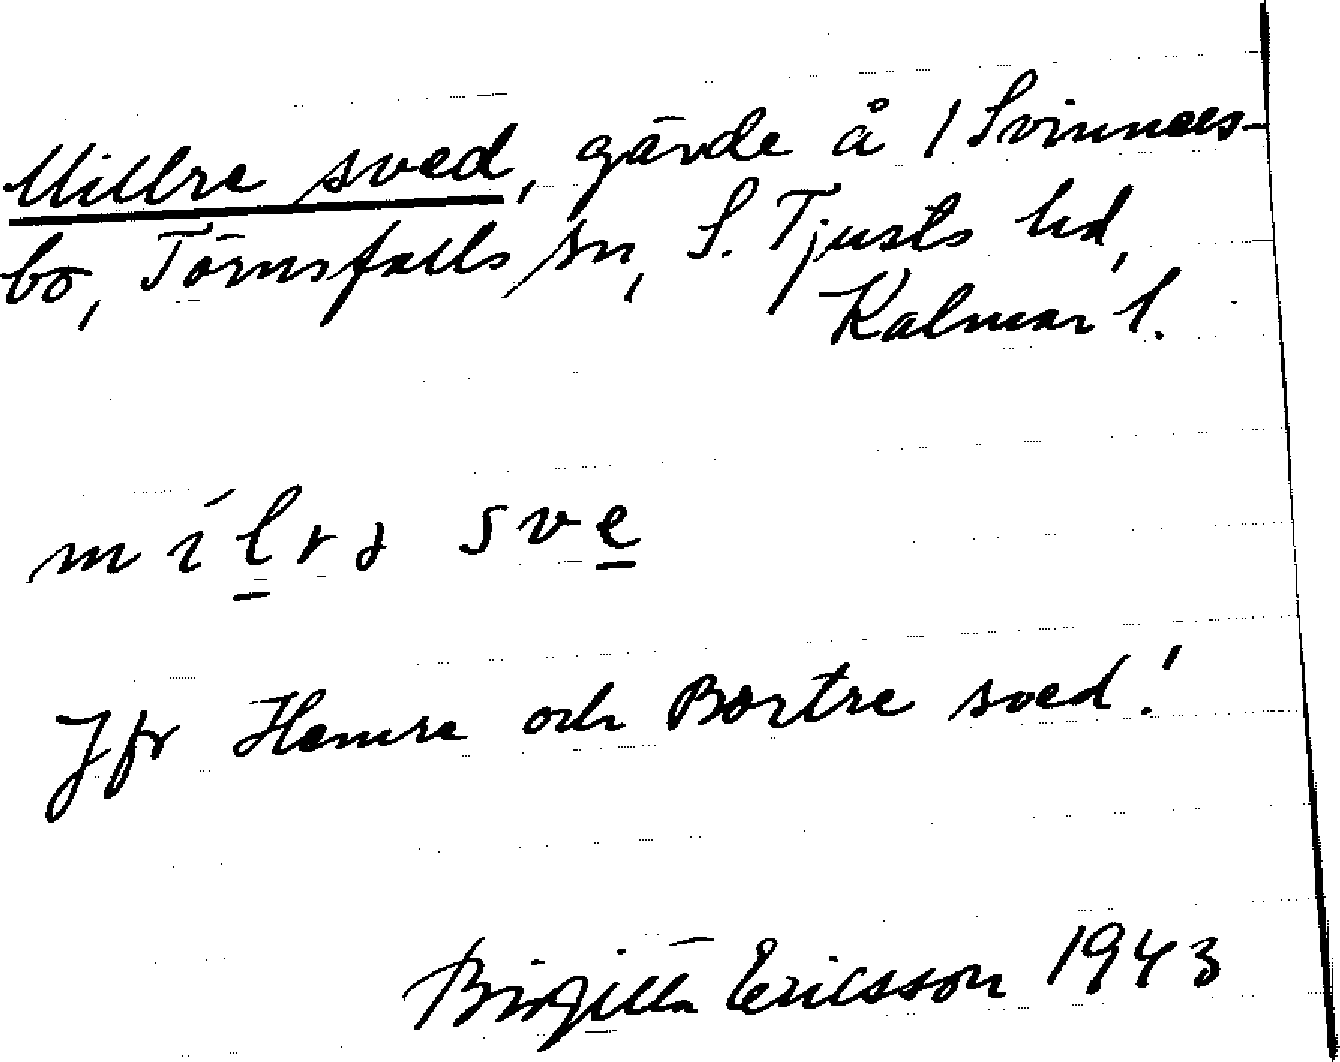 Millre sved, gärde å 1 Svinnees-
bo, Törnsfalls sn, S. Tjusts hd,
Kalmar l.
mílrə sve
Jfr Hemre och Bortre sved!
Birgitta Ericsson 1943